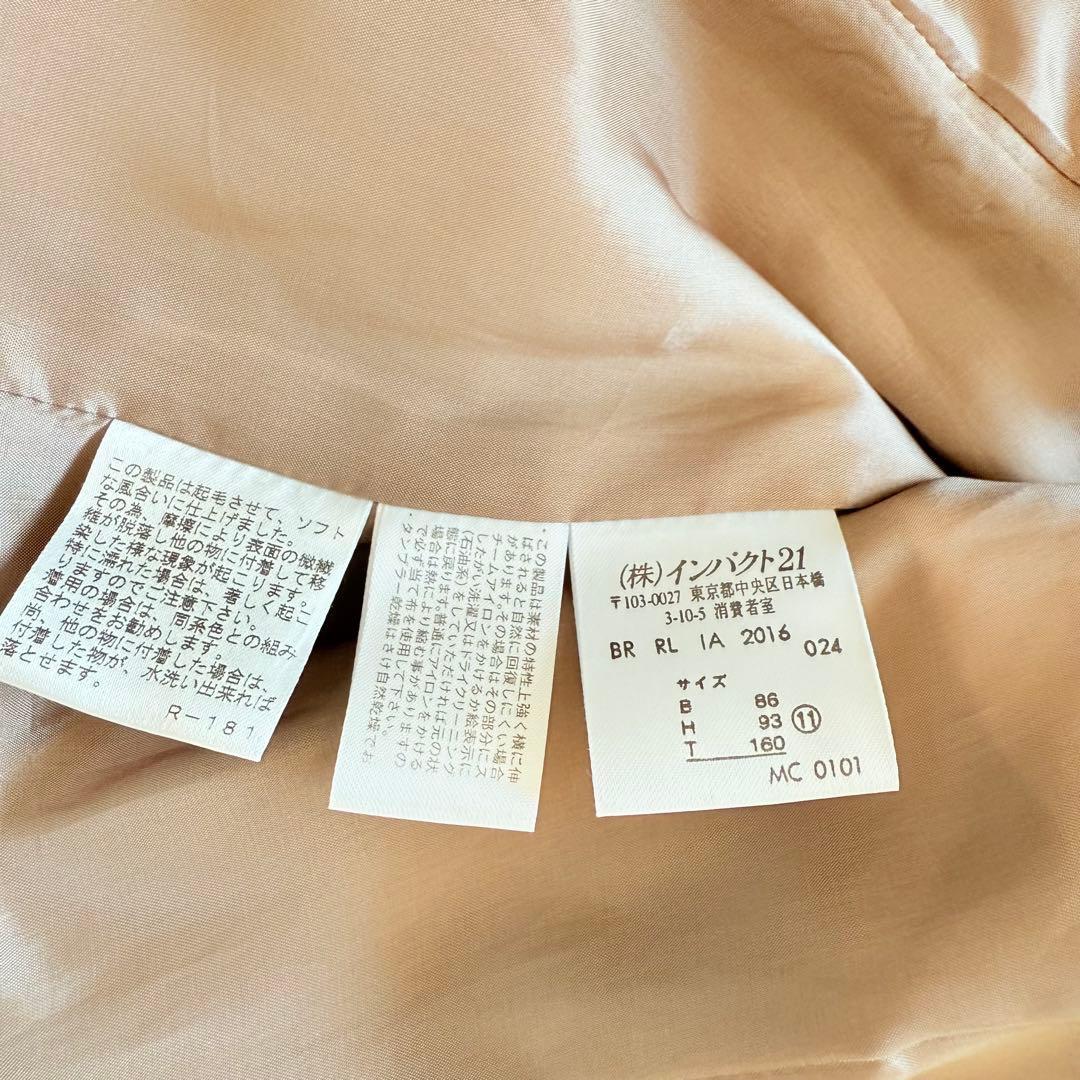 この製品は起毛させて、ソフト
な風合いに仕上げました。
その為、摩擦により表面の微繊
維が脱落し他の物に付着して移
染した様な現象が起こります。
特に濡れた場合は、著しく起こ
りますのでご注意下さい。
着用の場合は、同系色との組み
合わせをお勧めします。
尚、他の物に付着した場合は、
付着した物が、水洗い出来れば
落とせます。
R-181
この製品は素材の特性上強く横に伸
ばされると自然に回復しにくい場合
があります。その場合はその部分にス
チームアイロンをかけるか絵表示に
したがい洗濯又はドライクリーニング
(石油系)をしていただければ元の状
態に戻ります。普通にアイロンをかける
場合は熱により縮む事がありますの
で必ず当て布を使用して下さい。
タンブラー乾燥はさけ自然乾燥でお
(株)インパクト21
〒103-0027 東京都中央区日本橋
3-10-5 消費者室
BR RL IA 2016 024
サイズ
B 86
H 93 ⑪
T 160
MC 0101